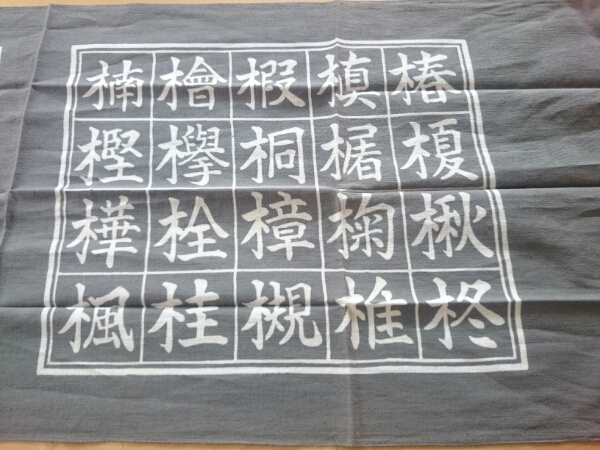 椿榎楸柊
槙椐椈椎
椵桐樟槻
檜欅栓桂
楠樫樺楓